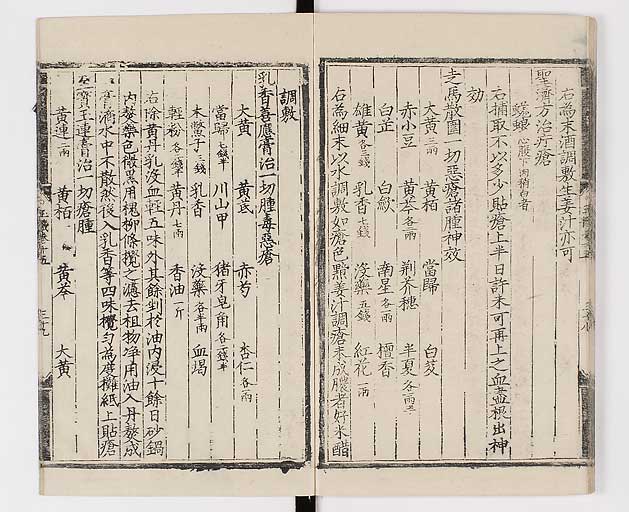 右為末酒調敷生姜汁亦可
聖濟方治疔瘡
蜣蜋 心腹下肉稍白者
右捕取不以多少貼瘡上半日許未可再上之血盡根出神
効
走馬散圍一切惡瘡諸腫神效
大黃三兩 黃栢 當歸 白芨
赤小豆 黃芩各二兩 荊芥穗 半夏各一兩半
白芷 白蘞 南星各一兩 檀香
雄黃各三錢 乳香七錢 沒藥五錢 紅花一兩
右為細末以水調敷如瘡色黯姜汁調瘡未成膿者好米醋
調敷
乳香善應膏治一切腫毒惡瘡
大黃 黃芪 赤芍 杏仁各一兩
當歸七錢半 川山甲 猪牙皂角各三錢半
木鱉子三錢 乳香 沒藥各半兩 血竭
輕粉各二錢半 黃丹七兩 香油一斤
右除黃丹乳沒血輕五味外其餘剉於油內浸十餘日砂鍋
內熬藥色微黑用槐柳條攪之濾去粗物淨用油入丹熬成
膏滴水中不散然後入乳香等四味攪勻為度攤紙上貼瘡
至寶玉連膏治一切瘡腫
黃連二兩 黃栢 黃芩 大黃